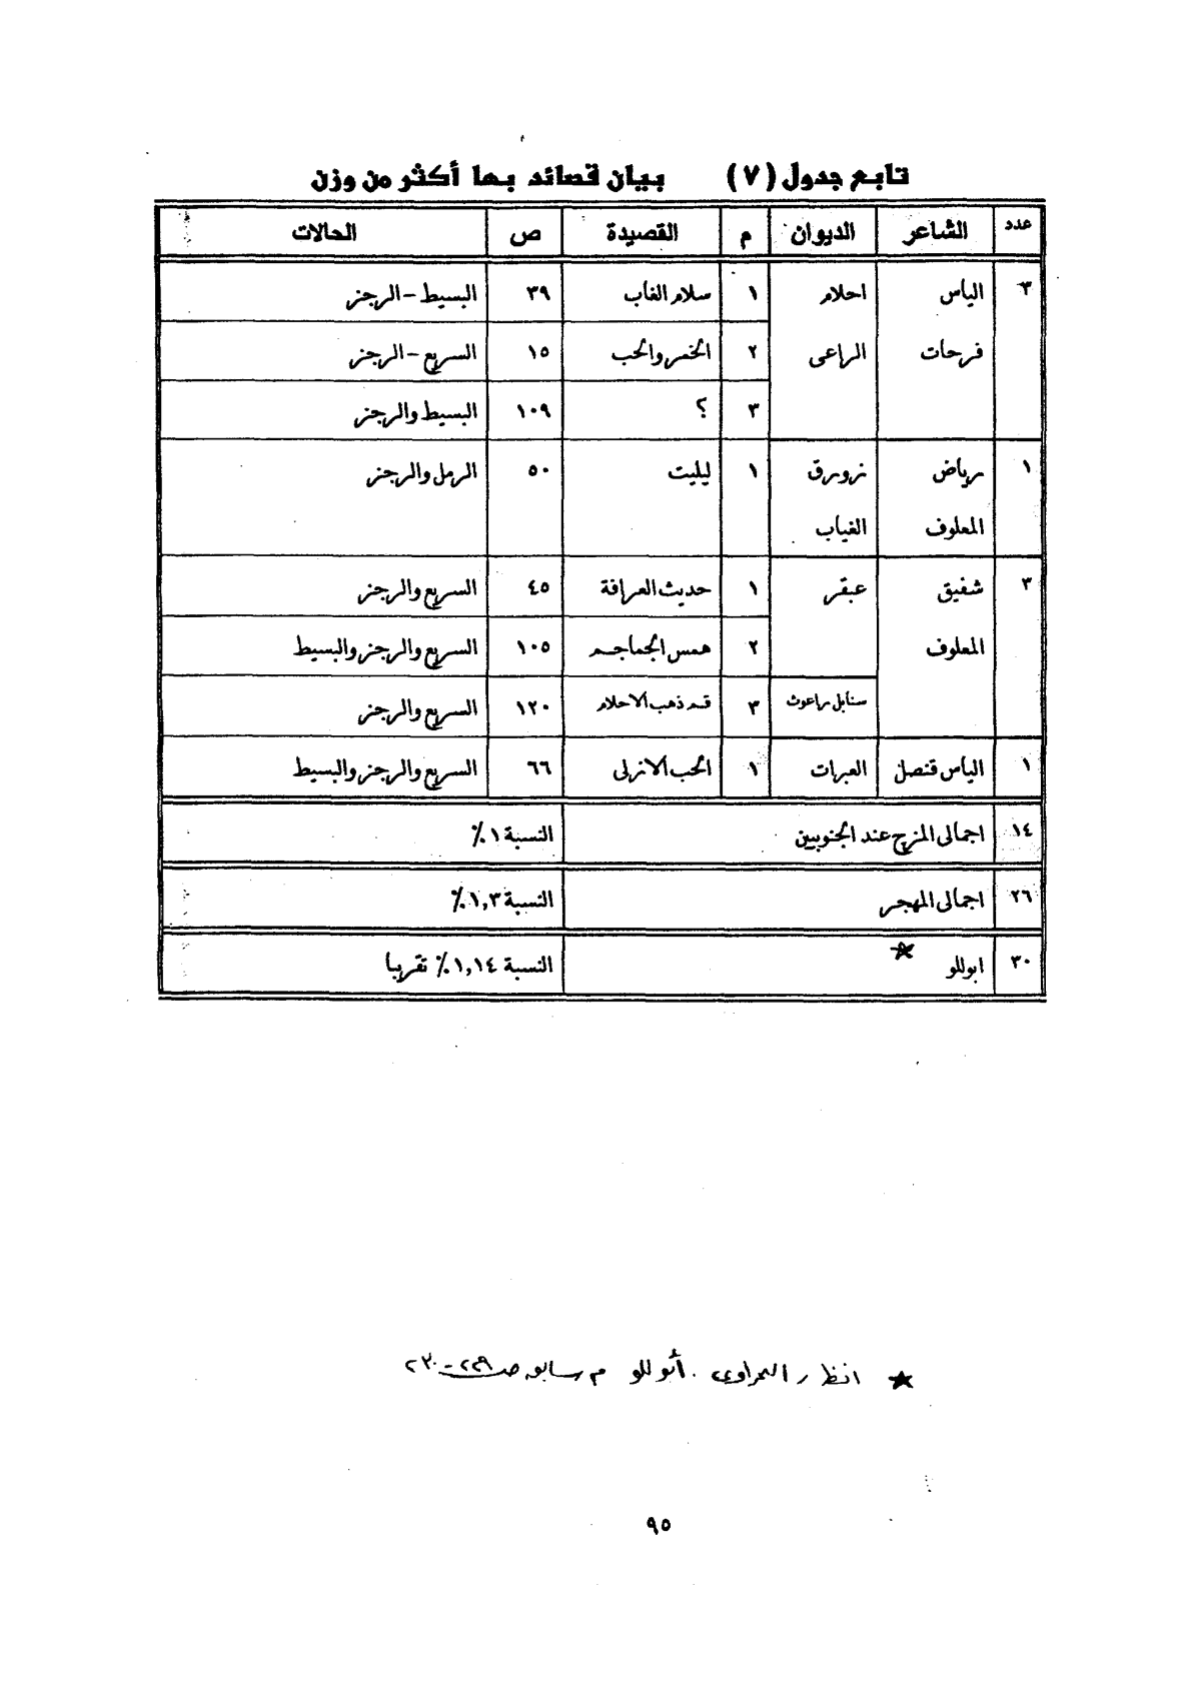 تابع جدول (٧) بيان قصائد بها أكثر من وزن
عدد الشاعر الديوان م القصيدة ص الحالات
٣ الياس احلام ١ سلام الغاب ٣٩ البسيط - الرجز
فرحات الراعى ٢ الخمر والحب ١٥ السريع - الرجز
٣ ؟ ١٠٩ البسيط والرجز
١ رياض زورق ١ ليليت ٥٠ الرمل والرجز
المعلوف الغياب
٣ شفيق عبقر ١ حديث العرافة ٤٥ السريع والرجز
المعلوف ٢ همس الجماجم ١٠٥ السريع والرجز والبسيط
سنابل راعوث ٣ قد ذهب الاحلام ١٢٠ السريع والرجز
١ الياس قنصل العبرات ١ الحب الازلى ٦٦ السريع والرجز والبسيط
١٤ اجمالى المزج عند الجنوبيين النسبة ١٪
٢٦ اجمالى المهجر النسبة ١,٣٪
٣٠ ابوللو ★ النسبة ١,١٤٪ تقريبا
★ انظر السحراوى. أبوللو م سابق ص ٢٢٩ - ٢٣٠
٩٥